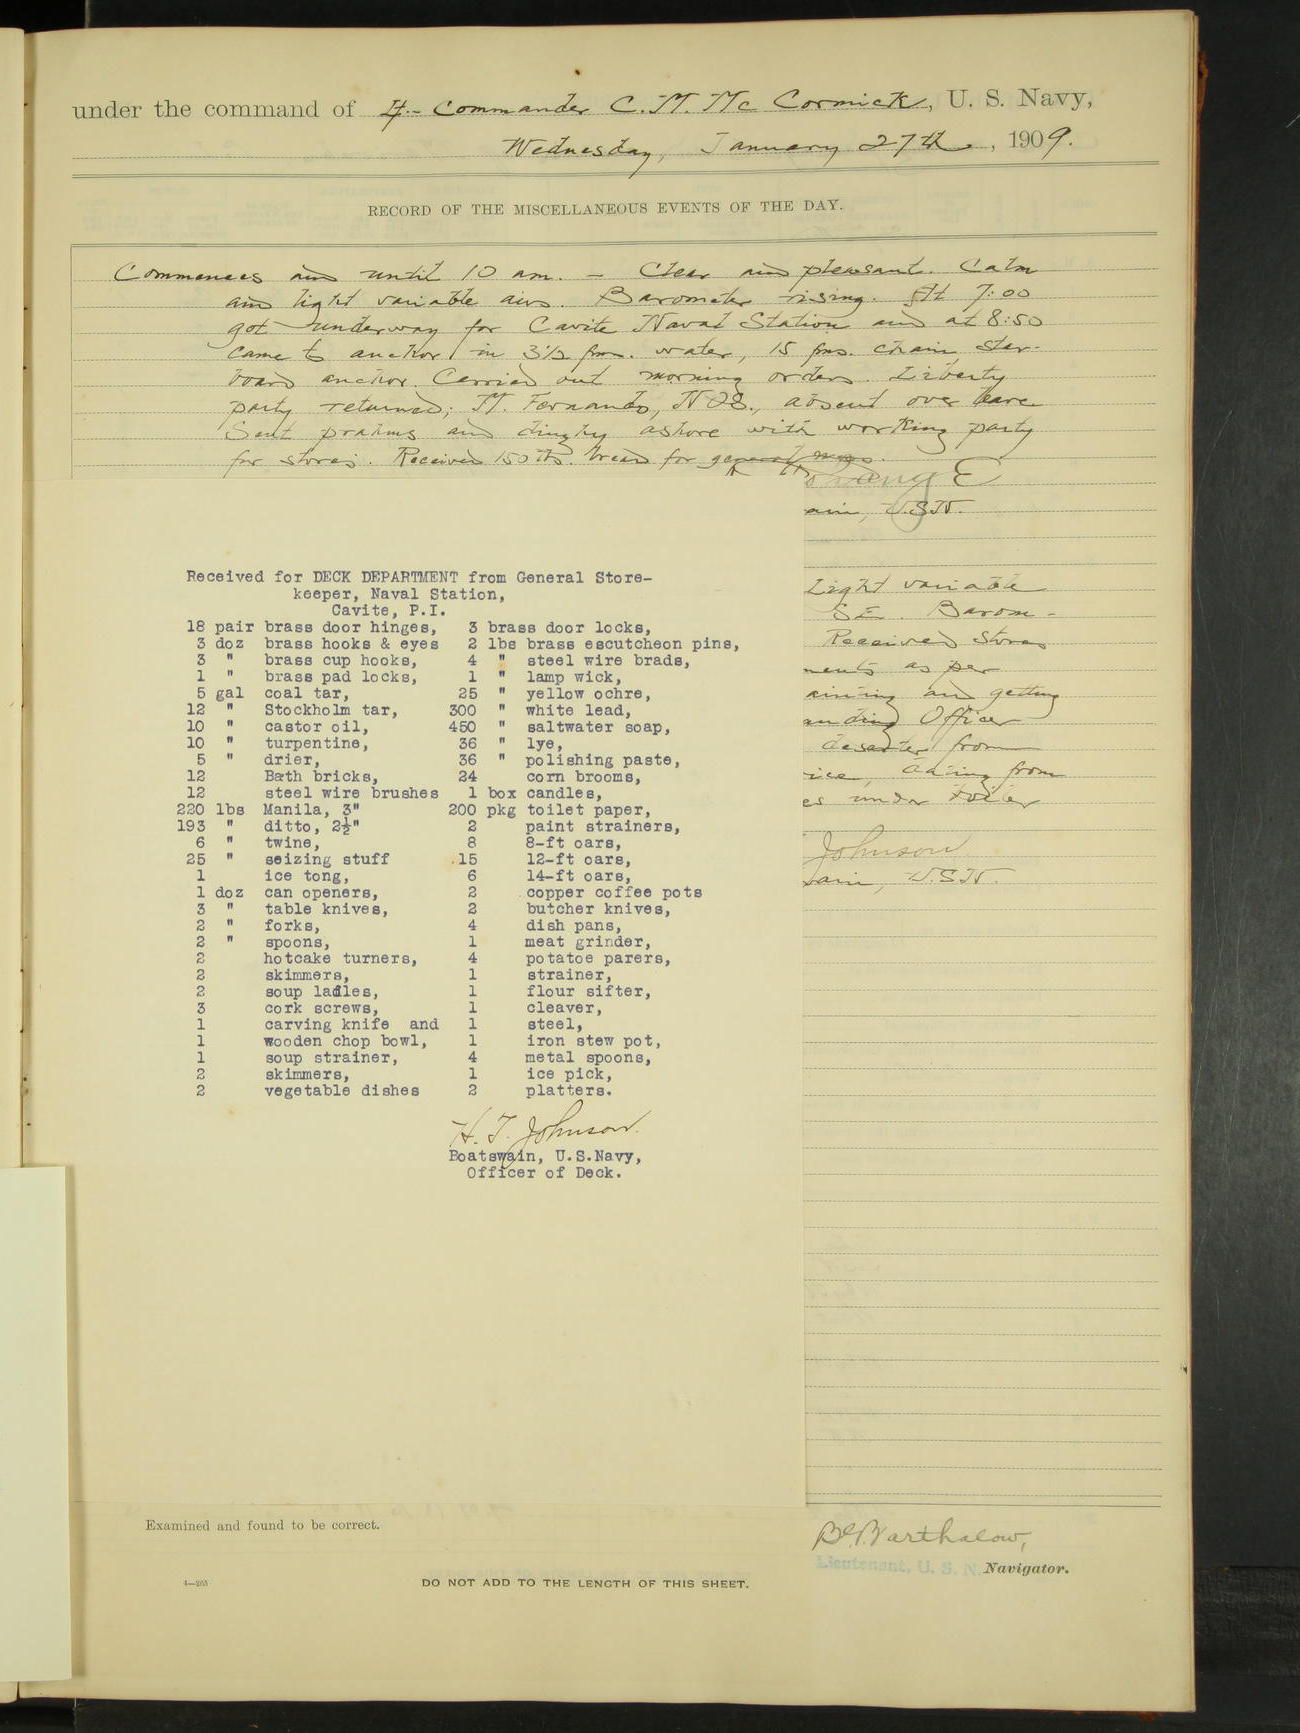 under the command of Lt-Commander C. M. McCormick, U. S. Navy,
Wednesday, January 27th, 1909.
RECORD OF THE MISCELLANEOUS EVENTS OF THE DAY.
Commences and until 10 am. - Clear and pleasant. Calm
and light variable airs. Barometer rising. At 7:00
got underway for Cavite Naval Station and at 8:50
came to anchor in 3½ fms. water, 15 fms. chain, star-
board anchor. Carried out morning orders. Liberty
party returned; M. Fernando, absent over leave
Sent prahms and dinghy ashore with working party
for stores. Received 150 lbs. bread for general mess.
ain, U.S.N.
Light variable
SE. Barom-
Received stores
ments as per
ainting and getting
anding Officer
deserter from
ice, dating from
es under
Johnson
wain, U.S.N.
Received for DECK DEPARTMENT from General Store-
keeper, Naval Station,
Cavite, P.I.
18 pair brass door hinges, 3 brass door locks,
3 doz brass hooks & eyes 2 lbs brass escutcheon pins,
3 " brass cup hooks, 4 " steel wire brads,
1 " brass pad locks, 1 " lamp wick,
5 gal coal tar, 25 " yellow ochre,
12 " Stockholm tar, 300 " white lead,
10 " castor oil, 450 " saltwater soap,
10 " turpentine, 36 " lye,
5 " drier, 36 " polishing paste,
12 Bath bricks, 24 corn brooms,
12 steel wire brushes 1 box candles,
220 lbs Manila, 3" 200 pkg toilet paper,
193 " ditto, 2½" 2 paint strainers,
6 " twine, 8 8-ft oars,
25 " seizing stuff 15 12-ft oars,
1 ice tong, 6 14-ft oars,
1 doz can openers, 2 copper coffee pots
3 " table knives, 2 butcher knives,
2 " forks, 4 dish pans,
2 " spoons, 1 meat grinder,
2 hotcake turners, 4 potatoe parers,
2 skimmers, 1 strainer,
2 soup ladles, 1 flour sifter,
3 cork screws, 1 cleaver,
1 carving knife and 1 steel,
1 wooden chop bowl, 1 iron stew pot,
1 soup strainer, 4 metal spoons,
2 skimmers, 1 ice pick,
2 vegetable dishes 2 platters.
H. T. Johnson.
Boatswain, U.S.Navy,
Officer of Deck.
Examined and found to be correct.
Barthalow,
Lieutenant, U. S. N. Navigator.
4—205
DO NOT ADD TO THE LENGTH OF THIS SHEET.